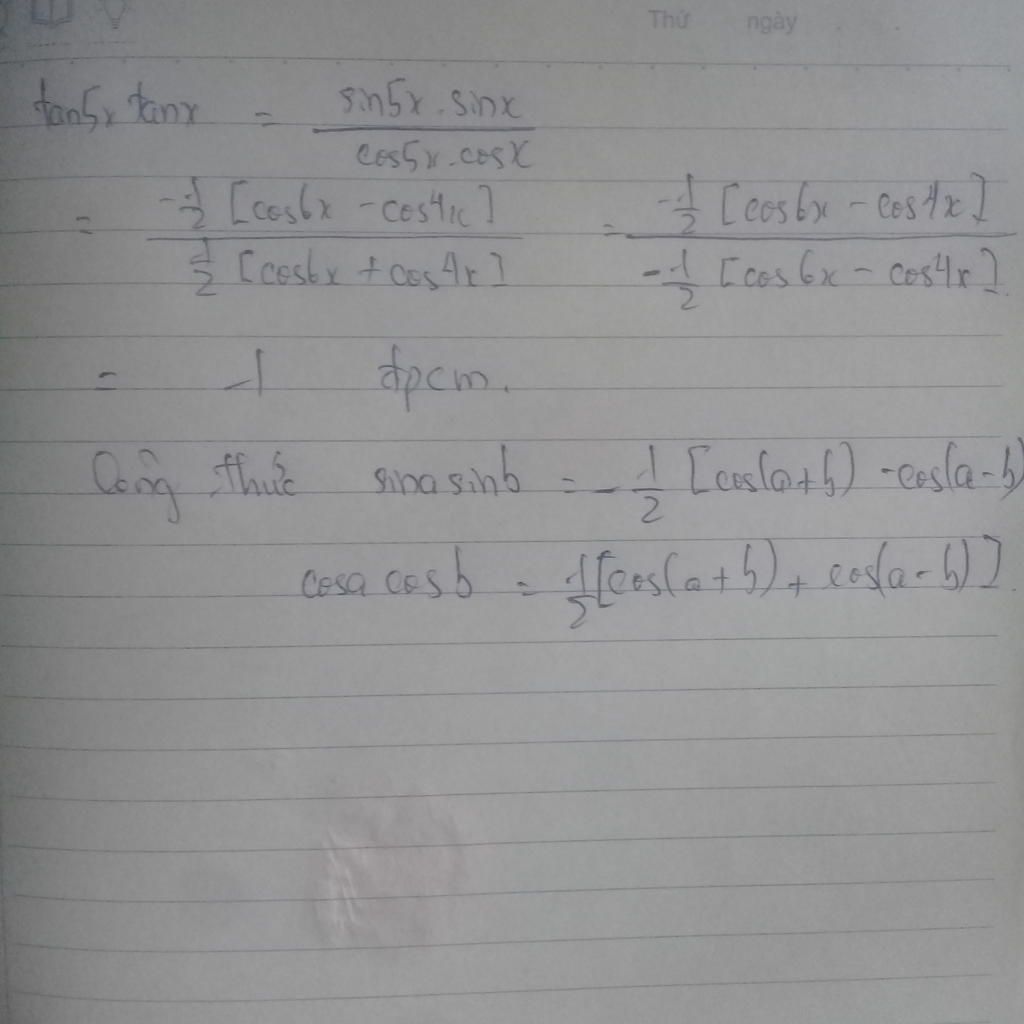 Thứ ngày
tan5x tanx = sin5x.sinx / cos5x.cosx
= -1/2 [cos6x - cos4x] / 1/2 [cos6x + cos4x] = -1/2 [cos6x - cos4x] / -1/2 [cos6x - cos4x].
= -1 đpcm.
Công thức sina sinb = -1/2 [cos(a+b) - cos(a-b)
cosa cosb = 1/2 [cos(a+b) + cos(a-b)].